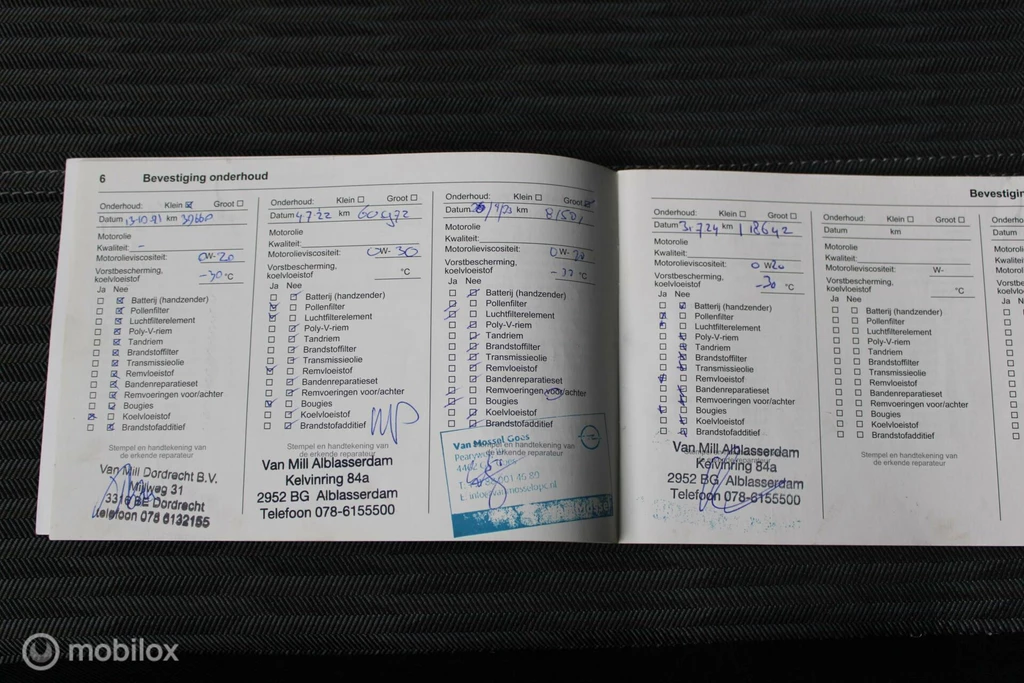 6 Bevestiging onderhoud
Onderhoud: Klein Groot
Datum 13-10-21 km
Motorolie
Kwaliteit: -
Motorolieviscositeit: 0W-20
Vorstbescherming,
koelvloeistof -30 °C
Ja Nee
Batterij (handzender)
Pollenfilter
Luchtfilterelement
Poly-V-riem
Tandriem
Brandstoffilter
Transmissieolie
Remvloeistof
Bandenreparatieset
Remvoeringen voor/achter
Bougies
Koelvloeistof
Brandstofadditief
Stempel en handtekening van
de erkende reparateur
Van Mill Dordrecht B.V.
Mijlweg 31
3316 BE Dordrecht
telefoon 078 6132155
Onderhoud: Klein Groot
Datum 4722 km
Motorolie
Kwaliteit:
Motorolieviscositeit: 0W-30
Vorstbescherming,
koelvloeistof °C
Ja Nee
Batterij (handzender)
Pollenfilter
Luchtfilterelement
Poly-V-riem
Tandriem
Brandstoffilter
Transmissieolie
Remvloeistof
Bandenreparatieset
Remvoeringen voor/achter
Bougies
Koelvloeistof
Brandstofadditief
Stempel en handtekening van
de erkende reparateur
Van Mill Alblasserdam
Kelvinring 84a
2952 BG Alblasserdam
Telefoon 078-6155500
Onderhoud: Klein Groot
Datum km
Motorolie
Kwaliteit:
Motorolieviscositeit: 0W-
Vorstbescherming,
koelvloeistof °C
Ja Nee
Batterij (handzender)
Pollenfilter
Luchtfilterelement
Poly-V-riem
Tandriem
Brandstoffilter
Transmissieolie
Remvloeistof
Bandenreparatieset
Remvoeringen voor/achter
Bougies
Koelvloeistof
Brandstofadditief
Stempel en handtekening van
de erkende reparateur
Van Mossel Goes
Bevestigin
Onderhoud: Klein Groot
Datum km 118642
Motorolie
Kwaliteit:
Motorolieviscositeit: 0W20
Vorstbescherming,
koelvloeistof -30 °C
Ja Nee
Batterij (handzender)
Pollenfilter
Luchtfilterelement
Poly-V-riem
Tandriem
Brandstoffilter
Transmissieolie
Remvloeistof
Bandenreparatieset
Remvoeringen voor/achter
Bougies
Koelvloeistof
Brandstofadditief
Van Mill Alblasserdam
Kelvinring 84a
2952 BG Alblasserdam
Telefoon 078-6155500
Onderhoud: Klein Groot
Datum km
Motorolie
Kwaliteit:
Motorolieviscositeit: W-
Vorstbescherming,
koelvloeistof °C
Ja Nee
Batterij (handzender)
Pollenfilter
Luchtfilterelement
Poly-V-riem
Tandriem
Brandstoffilter
Transmissieolie
Remvloeistof
Bandenreparatieset
Remvoeringen voor/achter
Bougies
Koelvloeistof
Brandstofadditief
Stempel en handtekening van
de erkende reparateur
Onderho
Datum
Motorol
Kwalitei
Motoroli
Vorstbe
koelvloe
Ja N
mobilox